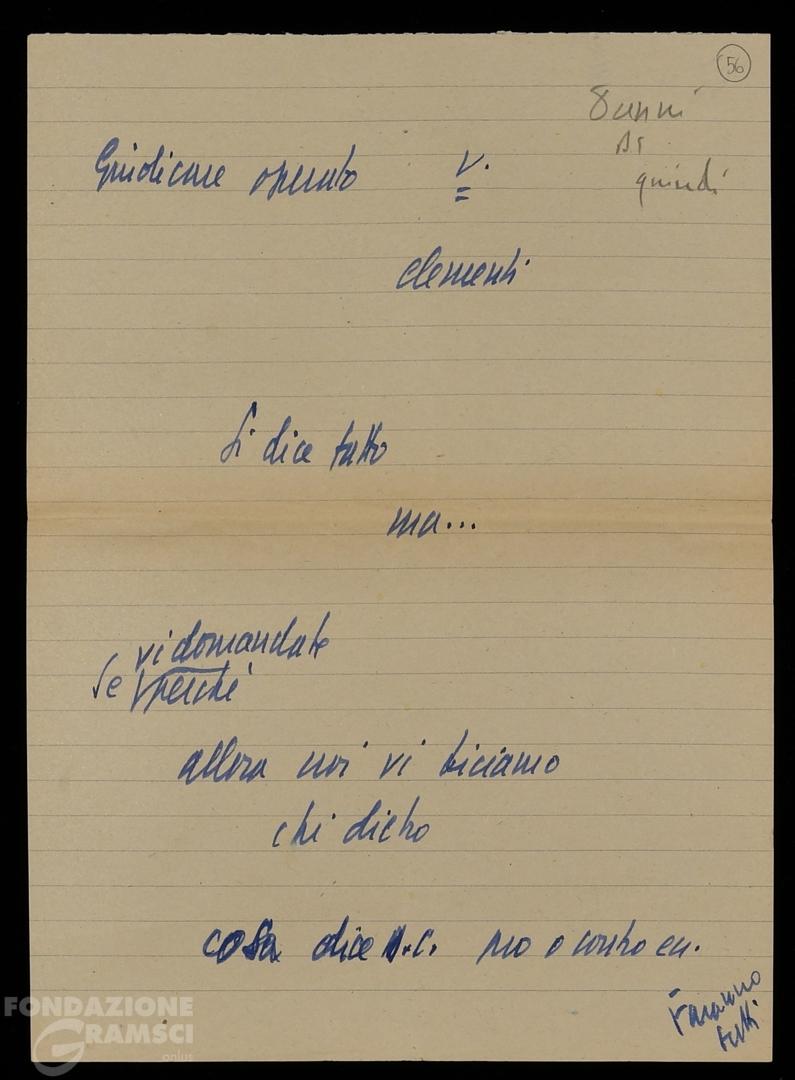 56
8 anni
quindi
Giudicare operato V.
elementi
Si dice tutto
ma...
vi domandate
se perché
allora noi vi diciamo
chi dietro
cosa dice .C. pro o contro
Faranno
tutti
FONDAZIONE
GRAMSCI
onlus